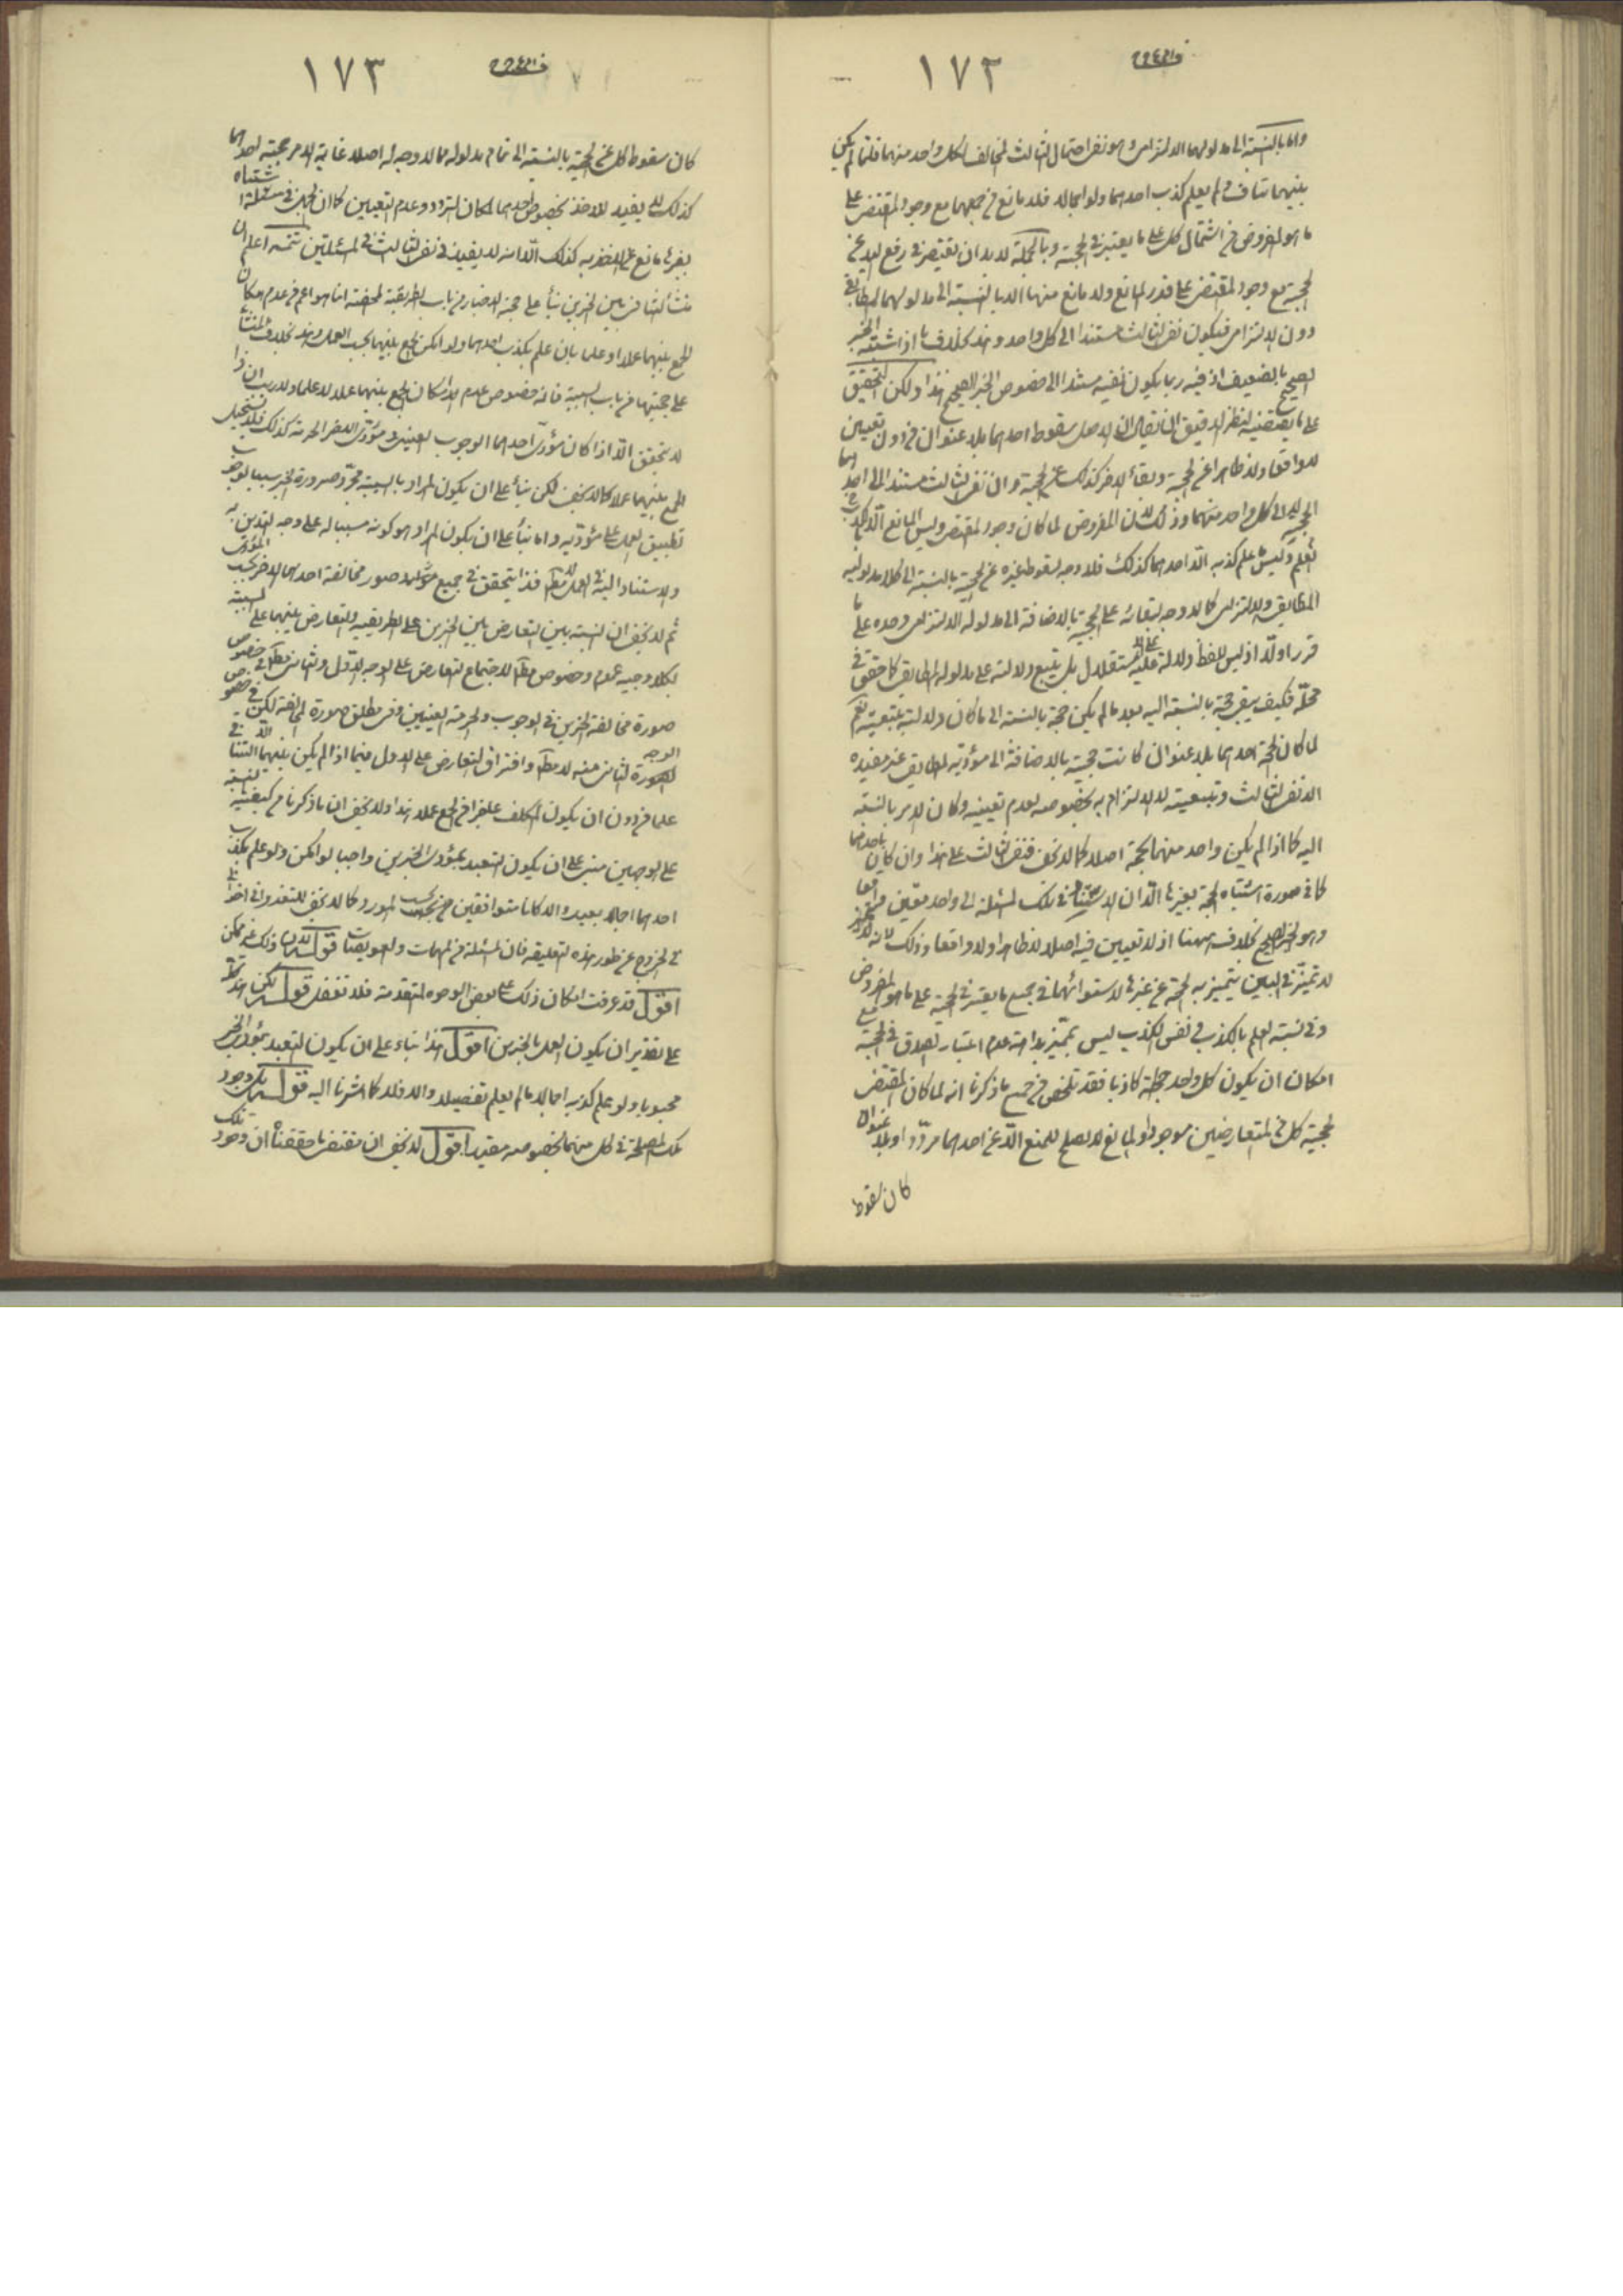 ١٧٢
واما بالنسبة الى مدلولهما الالتزامى وهو نفى احتمال الثالث المخالف لكل واحد منهما فلما لم يكن
بينهما تناف ولم يعلم كذب احدهما ولو اجمالا فلا مانع من حجيتهما مع وجود المقتضى على
ما هو المفروض من اشتمال كل على ما يعتبر فى الحجية وبالجملة لابد ان يقتصر فى رفع اليد عن
الحجية مع وجود المقتضى على قدر المانع ولا مانع منها الا بالنسبة الى مدلولهما المطابقى
دون الالتزامى فيكون نفى الثالث مستندا الى كل واحد وهذا بخلاف ما اذا اشتبه الخبر
الصحيح بالضعيف اذ فيه ربما يكون نفيه مستندا الى خصوص الخبر الصحيح هذا ولكن التحقيق
على ما يقتضيه النظر الدقيق ان يقال ان الاصل سقوط احدهما بلا عنوان من دون تعيين
لا واقعا ولا ظاهرا عن الحجية وبقاء الاخر كذلك على الحجية وان نفى الثالث مستند الى احدهما
لا الى كل واحد منهما وذلك لان المفروض لما كان وجود المقتضى وليس المانع الا الكذب
المعلوم وليس ما علم كذبه الا احدهما كذلك فلا وجه لسقوط غيره عن الحجية بالنسبة الى كلا مدلوليه
المطابقى والالتزامى كما لا وجه لبقائه على الحجية بالاضافة الى مدلوله الالتزامى وحده على ما
قرر اولا اذ ليس للفظ دلالة عليه مستقلا بل يتبع دلالته على مدلوله المطابقى كما حقق فى
محله فكيف يبقى حجة بالنسبة اليه بعد ما لم يكن حجة بالنسبة الى ما كان دلالته بتبعيته نعم
لما كان الحجة احدهما بلا عنوان كانت حجيته بالاضافة الى مؤديه المطابقى غير مفيدة
الا نفى الثالث وتبعيته لا الالتزام به بخصوصه لعدم تعيينه وكان الامر بالنسبة
اليه كما اذا لم يكن واحد منهما بحجة اصلا كما لا يخفى فنفى الثالث على هذا وان كان باحدهما
كما فى صورة اشتباه الحجة بغيرها الا ان الاستناد فى تلك المسئلة الى واحد معين واقعا
وهو الخبر الصحيح بخلافه ههنا اذ لا تعيين فيه اصلا لا ظاهرا ولا واقعا وذلك لانه
لا تميز فى البين يتميز به الحجة عن غيرها لاستوائهما فى جميع ما يعتبر فى الحجية على ما هو المفروض
وفى نسبة العلم بالكذب فى نفس الكذب ليس بمميز بداهة عدم اعتبار الصدق فى الحجية مع
امكان ان يكون كل واحد كاذبا فقد تلخص من جميع ما ذكرنا انه لما كان المقتضى
لحجية كل من المتعارضين موجودا والمانع لا يصلح للمنع الا عن احدهما مرددا او بلا عنوان
كان سقوط
١٧٣
كان سقوط كل عن الحجية بالنسبة الى تمام مدلوله مما لا وجه له اصلا غاية الامر حجية احدهما
كذلك لا يفيد للاخذ بخصوص احدهما لمكان التردد وعدم التعيين كما ان الجهل فى مسئلة اشتباه
بغيرها مانع عن الظفر به كذلك الا انه لا يفيد فى نفى الثالث فى المسئلتين تتمة اعلم ان
منشأ التنافى بين الخبرين بناء على حجية الاخبار من باب الطريقية المحضة انما هو اعم من عدم امكان
الجمع بينهما عملا او علما بان علم بكذب احدهما ولو امكن الجمع بينهما بحسب العمل وهذا بخلاف المنشأ
على حجيتها من باب السببية فانه خصوص عدم امكان الجمع بينهما عملا لا علما ولا ريب ان ذا
لا يتحقق الا اذا كان مؤدى احدهما الوجوب العينى ومؤدى الاخر الحرمة كذلك فلا يستحيل
الجمع بينهما عملا كما لا يخفى لكن بناء على ان يكون المراد بالسببية مجرد صيرورة الخبر سببا لوجوب
تطبيق العمل على مؤديه واما بناء على ان يكون المراد هو كونه سببا له على وجه التدين به
والاستناد اليه فى العمل فذا يتحقق فى جميع صور مخالفة احدهما الاخر بحسب المؤدى
ثم لا يخفى ان النسبة بين التعارض بين الخبرين على الطريقية والتعارض بينهما على السببية
بكلا وجهيه عموم وخصوص مطلقا لاجتماع التعارض على الوجه الاول والثانى مطلقا فى خصوص
صورة مخالفة الخبرين فى الوجوب والحرمة العينيين وفى مطلق صورة المخالفة لكن فى خصوص
الوجه الثانى منه لا مطلقا وافتراق التعارض على الاول فيما اذا لم يكن بينهما التنافى الا فى
علما من دون ان يكون المكلف عاجزا من الجمع عملا هذا ولا يخفى ان ما ذكرنا من كيفية النسبة
على الوجهين مبنى على ان يكون التعبد بمؤدى الخبرين واجبا لو امكن ولو علم بكذب
احدهما اجمالا بعيد والا كانا متوافقين بحسب المورد كما لا يخفى
فى الخروج عن طور هذه التعليقة فان المسئلة من المهمات والعويصات قوله لان ذلك غير ممكن
اقول قد عرفت امكان ذلك على بعض الوجوه المتقدمة فلا تغفل قوله لكن هذا
على تقدير ان يكون العمل بالخبرين اقول هذا بناء على ان يكون التعبد بمؤدى الخبر
محبوبا ولو علم كذبه اجمالا ما لم يعلم تفصيلا والا فلا كما اشرنا اليه قوله بل وجود
تلك المصلحة فى كل منهما بخصوصه مقيد اقول لا يخفى ان مقتضى ما حققناه ان وجود تلك